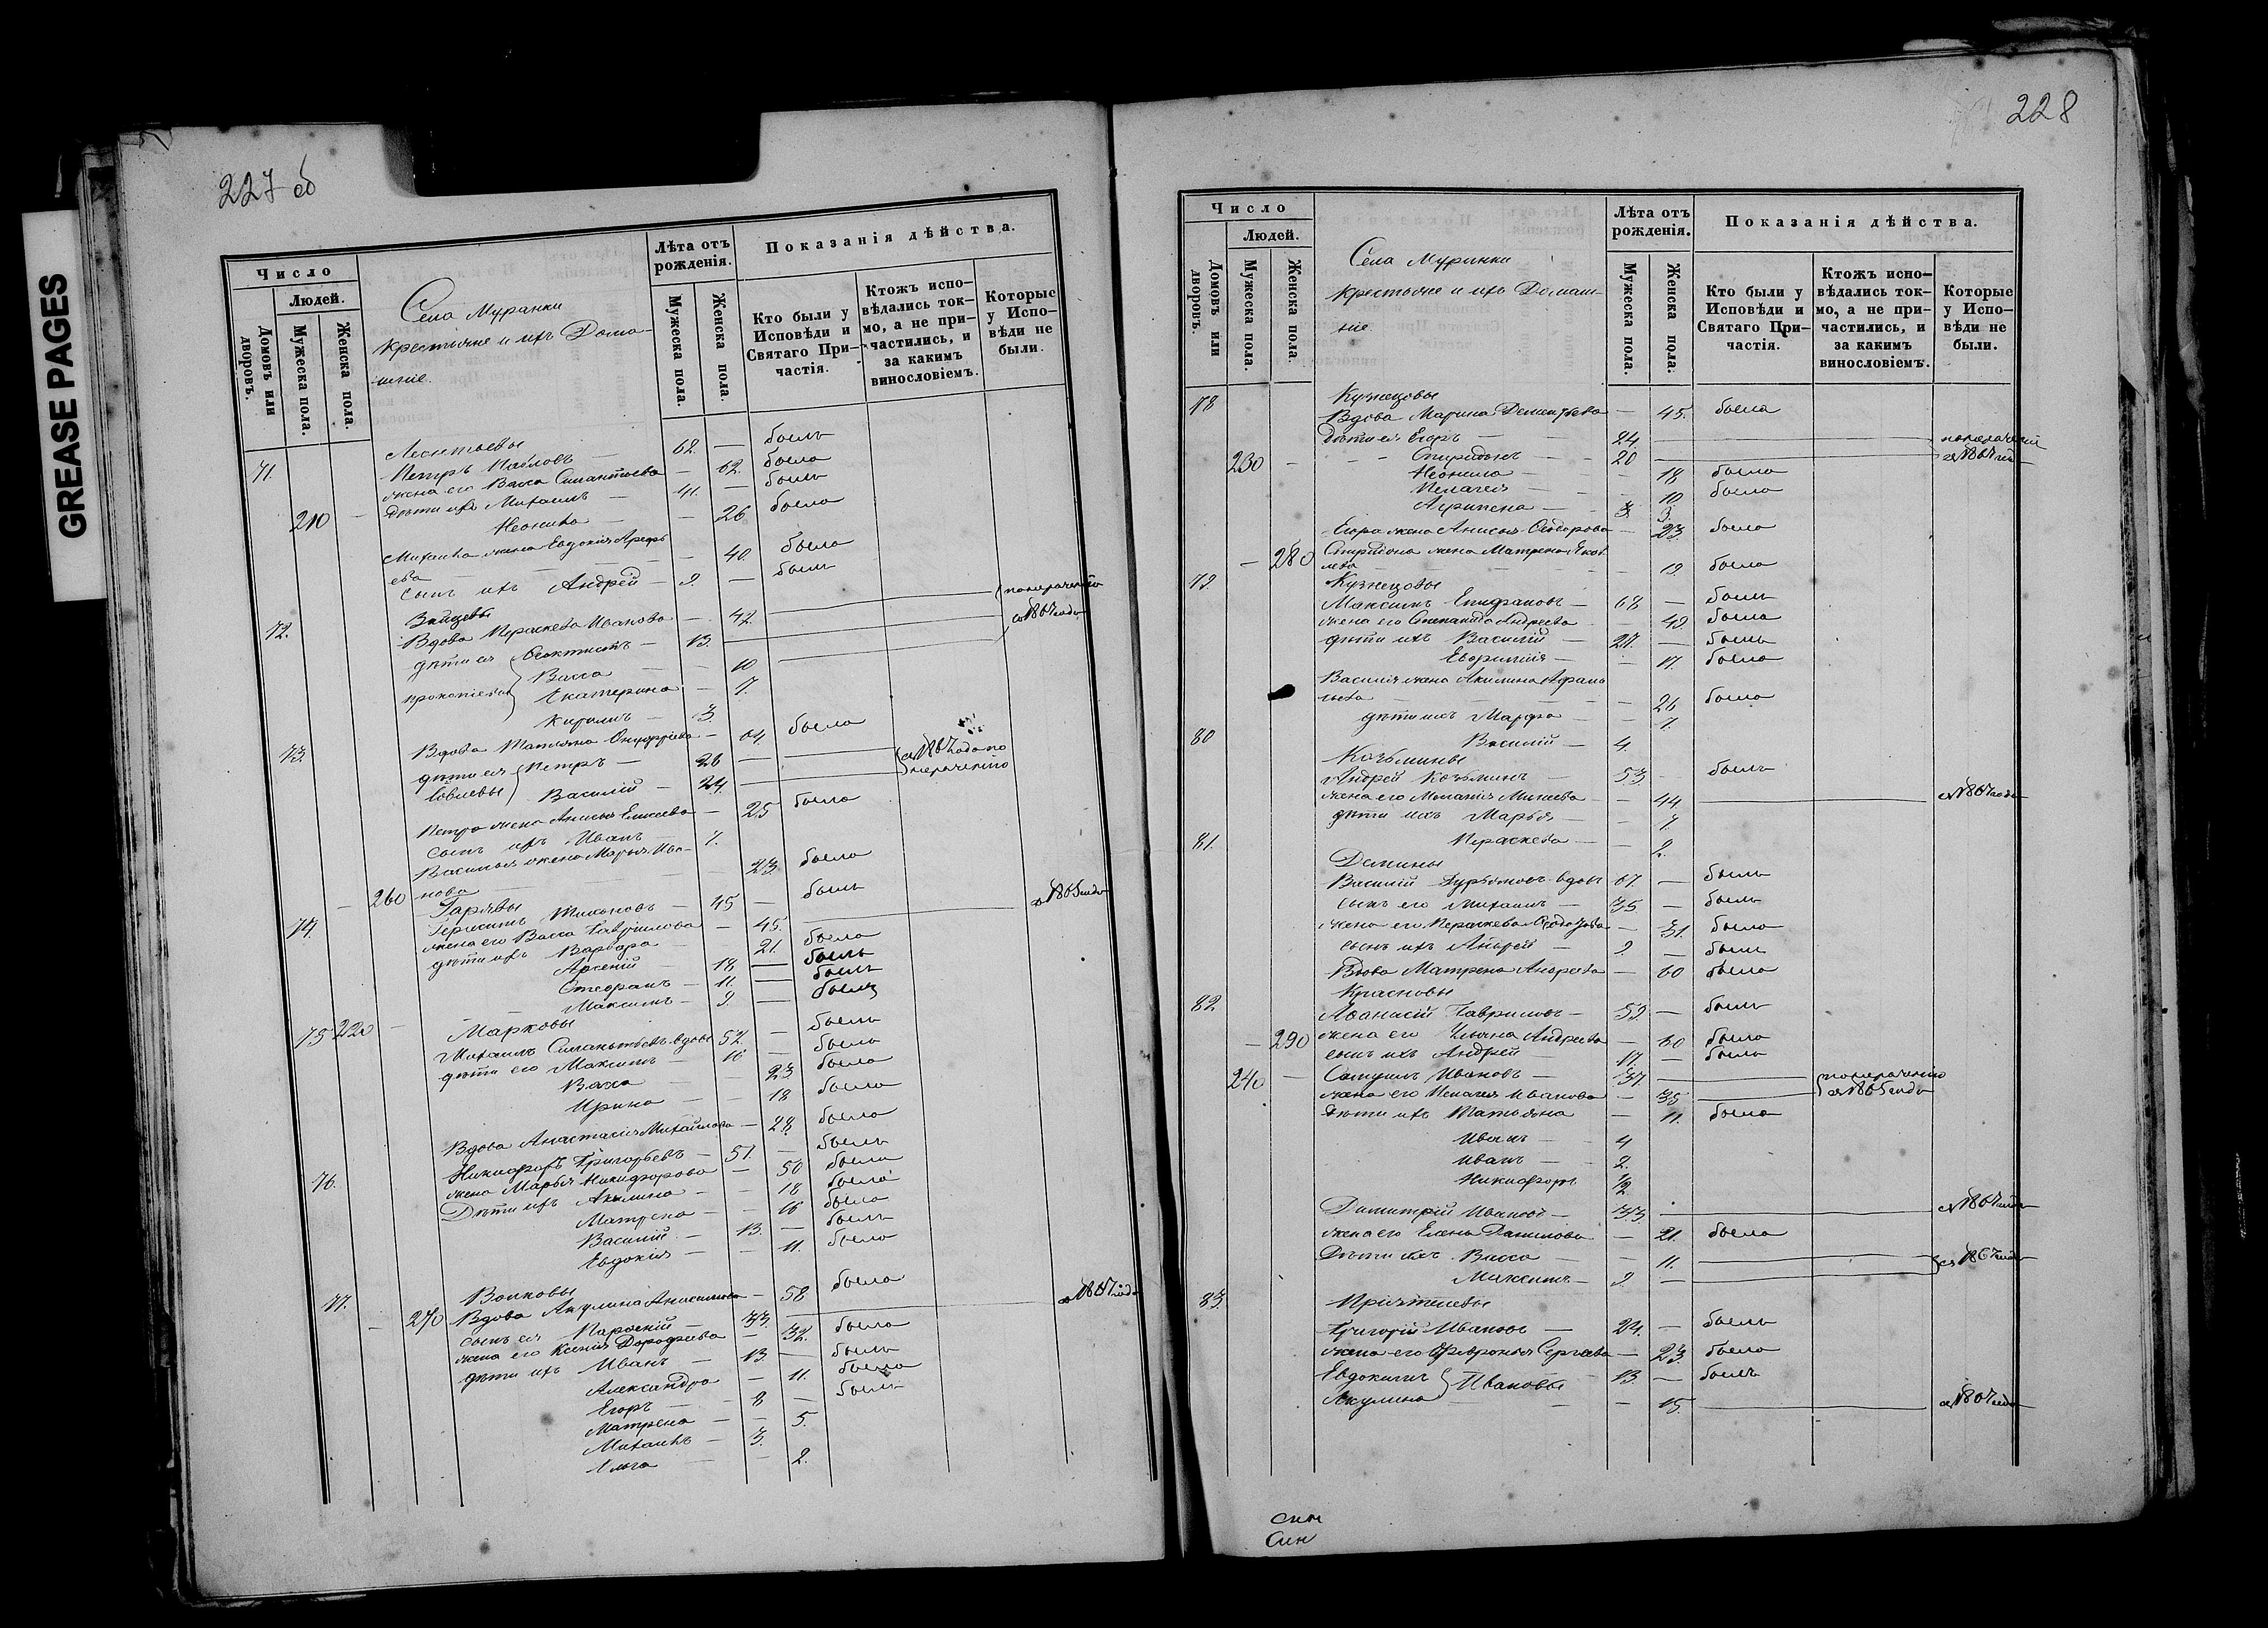 GREASE PAGES
227 об
Число
Людей.
Домовъ или дворовъ.
Мужеска пола.
Женска пола.
Села Муранки
крестьяне и ихъ Дома-
шніе.
Лѣта отъ рожденія.
Мужеска пола.
Женска пола.
Показанія дѣйства.
Кто были у Исповѣди и Святаго При-частія.
Ктожъ испо-вѣдались ток-мо, а не при-частились, и за какимъ винословіемъ.
Которые у Испо-вѣди не были.
Леонтьевы
71. Петръ Павловъ — 62. — былъ
жена его Васса Силантьева — 62. была
210 — дѣти ихъ Михаилъ — 41. — былъ
Неонила — — 26 была
Михаила жена Евдокія Арефь
ева — — 40. была
сынъ ихъ Андрей — 9. — былъ
72. Вдова Параскева Иванова — 42. по нерачению
дѣти ея Ѳеоктистъ — 13. съ 1867 года
Васса — 10
Прокопіевы Екатерина — 7.
Кирилъ — 3.
73. Вдова Татьяна Онуфріева — 64. была
дѣти ея Петръ — 26 — съ 1867 года по
Василій — 24. — нерачению
Петра жена Анисья Елисеева — 25 была
сынъ ихъ Иванъ — 1.
Василья жена Марья Ива-
260 нова — 23. была
74. Герасимъ Тихоновъ — 45 — былъ
жена его Васса Гавриилова — 45. съ 1865 года
дѣти ихъ Варвара — 21. была
Арсеній — 18 — былъ
Стефанъ — 11. — былъ
220 — Максимъ — 9. — былъ
75 Марковы
Михаилъ Силантьевъ вдовъ 52. — былъ
дѣти его Максимъ — 16 — былъ
Васса — 23 была
Ирина — 18 была
Вдова Анастасія Михайлова — 28. была
76. Никифоръ Григорьевъ — 51. — былъ
жена Марья Никифорова — 50 была
Дѣти ихъ Акилина — 18 была
Матрена — 16 была
Василій — 13. — былъ
Евдокія — 11. была
Волковы
77. — 270 Вдова Акулина Анисимова — 58 была
сынъ ея — 33. съ 1867 года
жена его Ксенія Дорофеева — 32. была
дѣти ихъ Иванъ — 13. — былъ
Александра — 11. была
Егоръ — 8 — былъ
Матрена — 5.
Михаилъ — 3.
Ольга — 2.
228
Число
Людей.
Домовъ или дворовъ.
Мужеска пола.
Женска пола.
Села Муранки
крестьяне и ихъ Домаш-
ніе.
Лѣта отъ рожденія.
Мужеска пола.
Женска пола.
Показанія дѣйства.
Кто были у Исповѣди и Святаго При-частія.
Ктожъ испо-вѣдались ток-мо, а не при-частились, и за какимъ винословіемъ.
Которые у Испо-вѣди не были.
78 Кузнецовы
Вдова Марина Дементьева — 45. была
Дѣти ея Егоръ — 24. по нерачению
230 — Спиридонъ — 20 съ 1867 года
Неонила — 18 была
Пелагея — 10 была
Агрипена — 3.
Егора жена Анисья Ѳедорова — 23. была
280 Спиридона жена Матрена Яков
лева — 19. была
79. Кузнецовы
Максимъ Епифановъ — 68 — былъ
жена его Степанида Андреева — 49 была
дѣти ихъ Василій — 27. — былъ
Евфимія — 17. была
Василія жена Акилина Афана
сьева — 26 была
дѣти ихъ Марфа — 7.
Василій — 4.
80 Козьмины
Андрей Козьминъ — 53. былъ
жена его Меланія Михеева — 44. съ 1867 года
дѣти ихъ Марья — 7.
Параскева — 2.
81. Демины
Василій вдовъ 67. — былъ
сынъ его Михаилъ — 35 — былъ
жена его Параскева — 31. была
сынъ ихъ Андрей — 9. — былъ
Вдова Матрена Андреева — 60 была
82 Красновы
Аѳанасій Гавриловъ — 59 — былъ
290 жена его Ульяна Андреева — 60 была
сынъ ихъ Андрей — 17. — былъ
240 — Самуилъ Ивановъ — 37. по нерачению
жена его Пелагея Иванова — 35 съ 1865 года
Дѣти ихъ Татьяна — 11. была
Иванъ — 4
Иванъ — 2.
Никифоръ 1/2
Димитрій Ивановъ — 33. съ 1867 года
жена его Елена Данилова — 21. была
Дѣти ихъ Васса — 11. съ 1867 года
Максимъ — 9. —
83. Пріятелевы
Григорій Ивановъ — 24. — былъ
жена его Февронья Сергеева — 23. была
Евдокимъ Ивановы — 13. — былъ
Акулина — 15. съ 1867 года